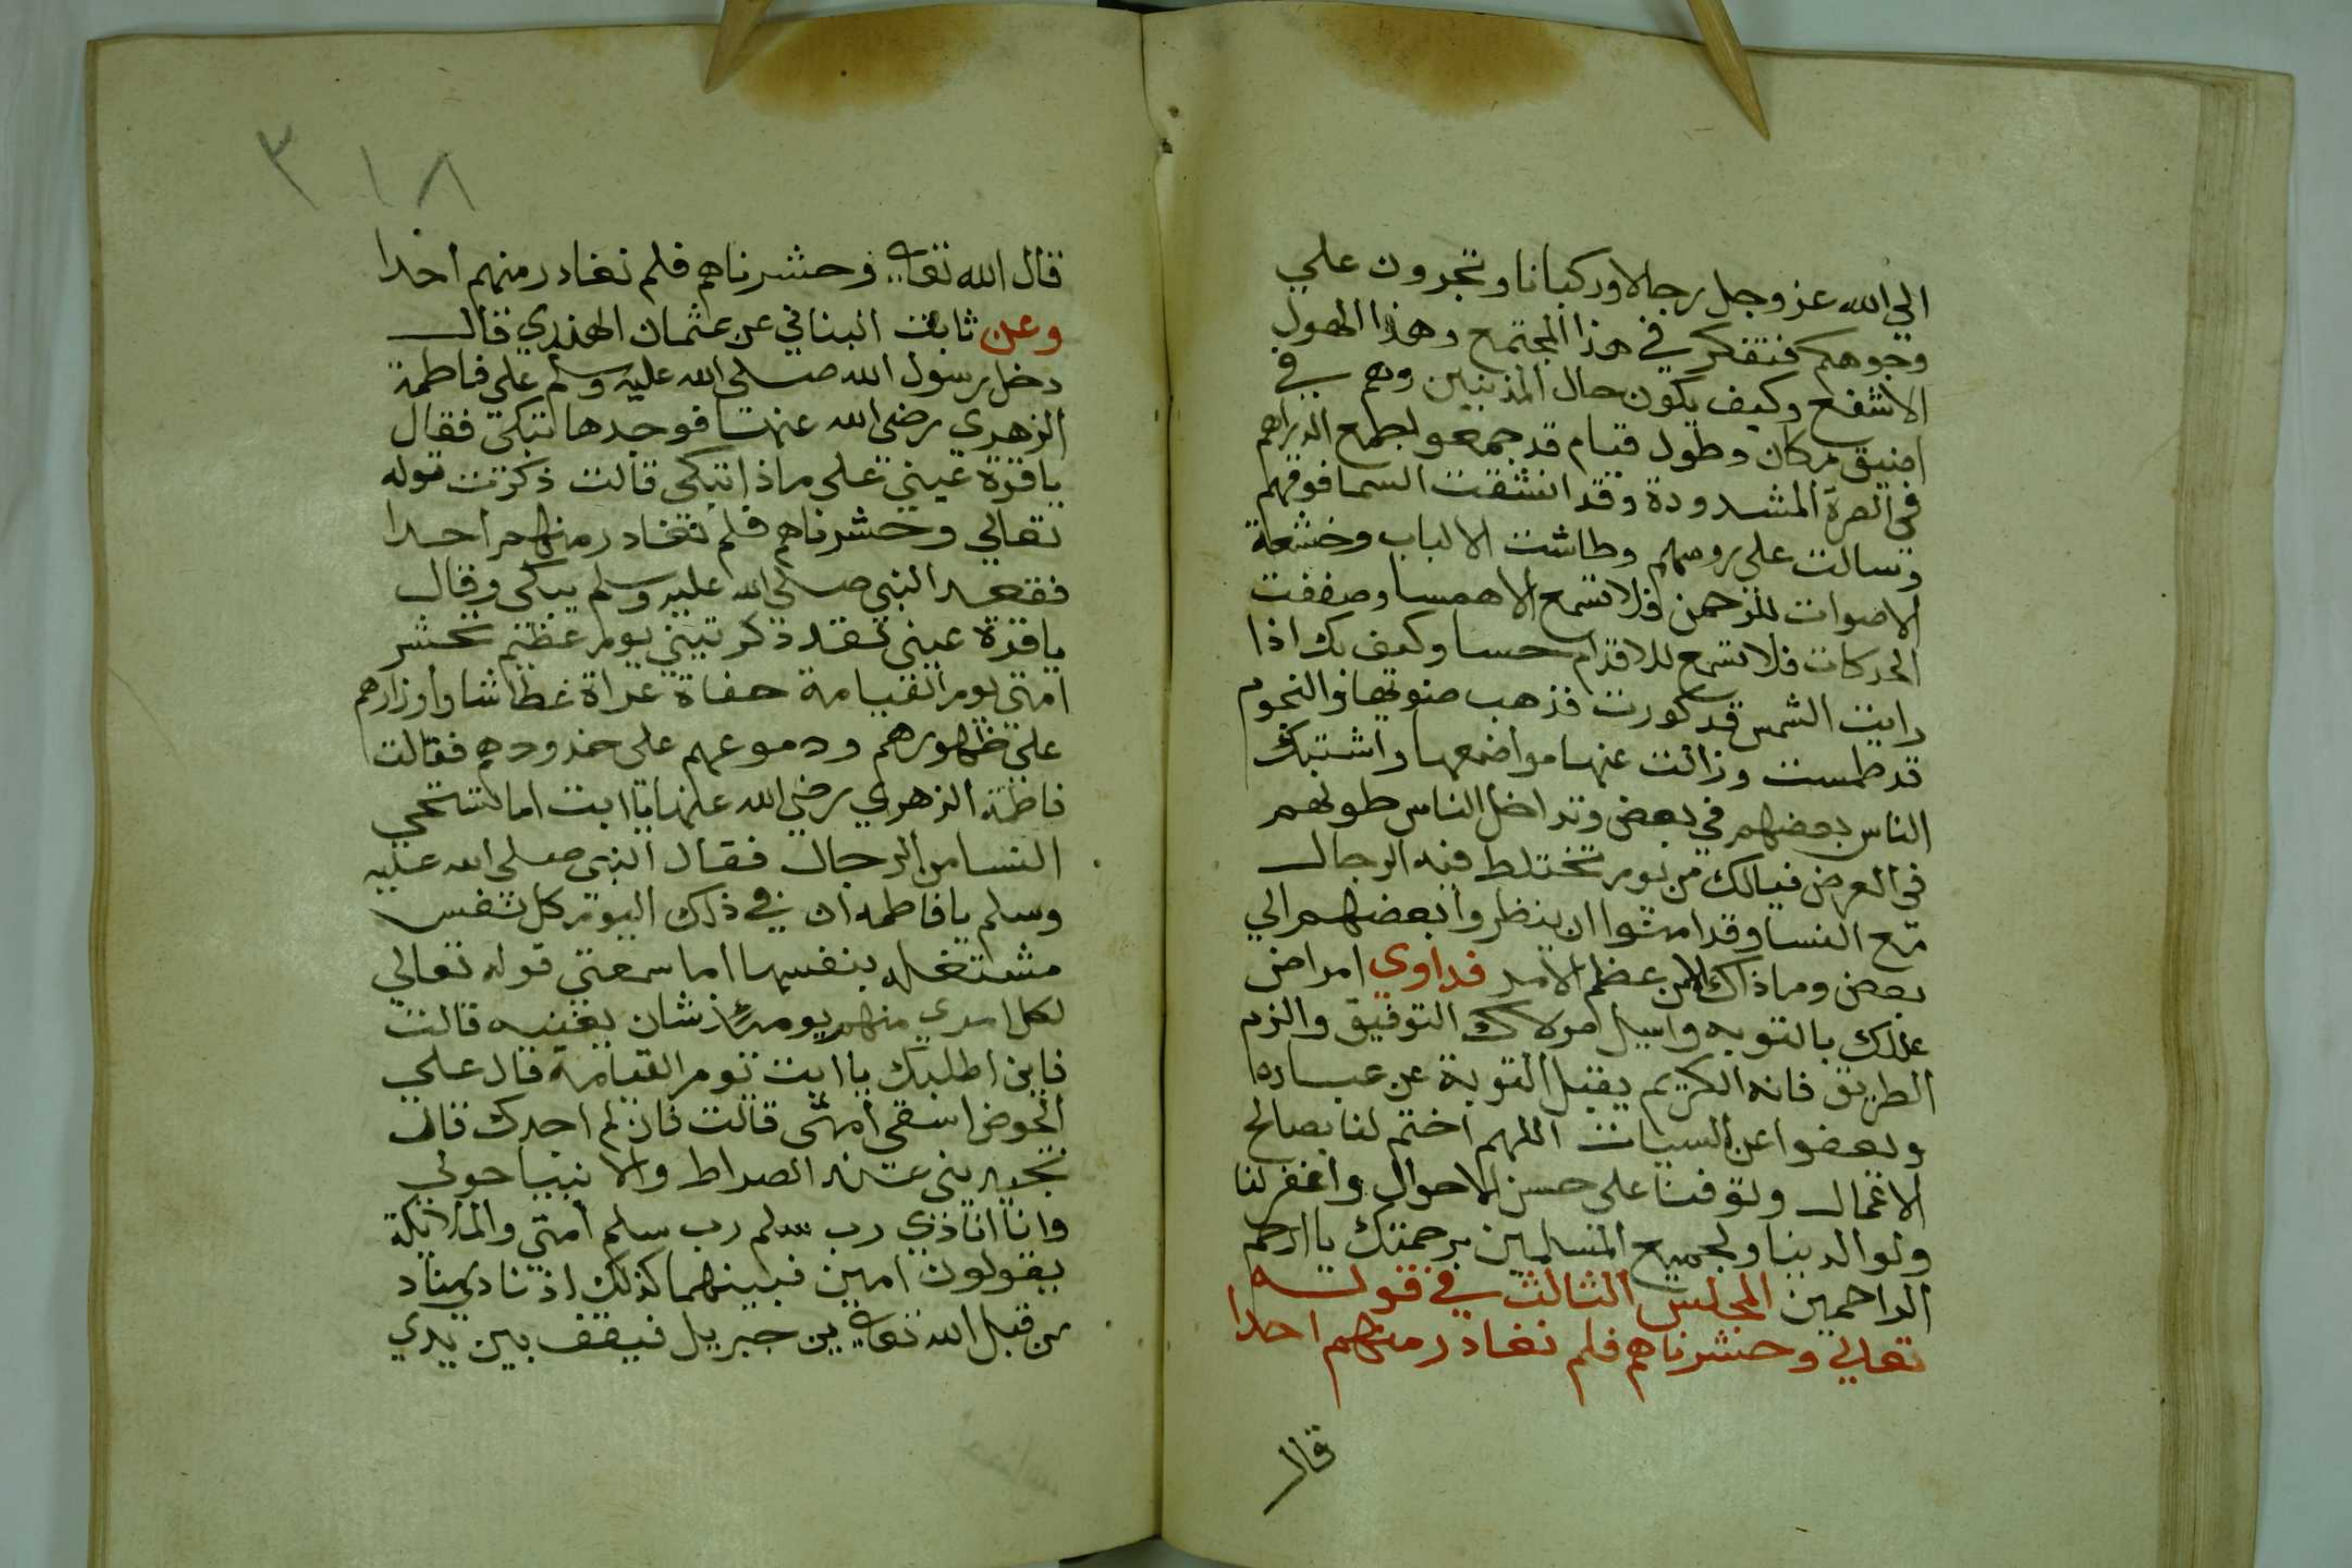 الي الله عز وجل رجالا وركبانا وتجرون علي
وجوهكم فتفكر في هذا المجتمع وهذا الهول
الاشفع وكيف يكون حال المذنبين وهم في
اضيق مكان وطول قيام قد جمعو لجمع الدراهم
في الصرة المشدودة وقد انشقت السما فوقهم
وسالت علي روسهم وطاشت الالباب وخشعة
الاصوات للرحمن فلا تسمع الا همسا وصففت
الحركات فلا تسمع للاقدام حسا وكيف بك اذا
رايت الشمس قد كورت فذهب ضوئها والنجوم
قد طمست وزالت عنها مواضعها واشتبك
الناس بعضهم في بعض وتداخل الناس طولهم
في العرض فيالك من يوم تختلط فيه الرجال
مع النسا وقد امنوا ان ينظروا بعضهم الي
بعض وما ذاك الا من عظم الامر فداوي امراض
عللك بالتوبه واسيل مولاك التوفيق والزم
الطريق فانه الكريم يقبل التوبة عن عباده
ويعفوا عن السيات اللهم اختم لنا بصالح
الاعمال وتوفنا على حسن الاحوال واغفر لنا
ولوالدينا ولجميع المسلمين برحمتك يا ارحم
الراحمين المجلس الثالث في قوله
تعالي وحشرناهم فلم نغادر منهم احدا
قال
٣١٨
قال الله تعالى وحشرناهم فلم نغادر منهم احدا
وعن ثابت البناني عن عثمان الهندي قال
دخل رسول الله صلى الله عليه وسلم علي فاطمة
الزهري رضي الله عنها فوجدها تبكي فقال
يا قرة عيني علي ماذا تبكي قالت ذكرت قوله
تعالي وحشرناهم فلم نغادر منهم احدا
فقعد النبي صلى الله عليه وسلم يبكي وقال
يا قرة عيني لقد ذكرتيني يوم عظيم تحشر
امتي يوم القيامة حفاة عراة عطاشا واوزارهم
علي ظهورهم ودموعهم على خدودهم فقالت
فاطمة الزهري رضي الله عنها يا ابت اما تستحي
النسا من الرجال فقال النبي صلى الله عليه
وسلم يا فاطمه ان في ذلك اليوم كل نفس
مشتغله بنفسها اما سمعتي قوله تعالي
لكل امري منهم يومئذ شان يغنيه قالت
فاين اطلبك يا ابت يوم القيامة قال علي
الحوض اسقي امتي قالت فان لم اجدك قال
تجديني عند الصراط والانبيا حولي
وانا انادي رب سلم رب سلم امتي والملائكة
يقولون امين فبينهما كذلك اذ نادي مناد
من قبل الله تعالى اين جبريل فيقف بين يدي